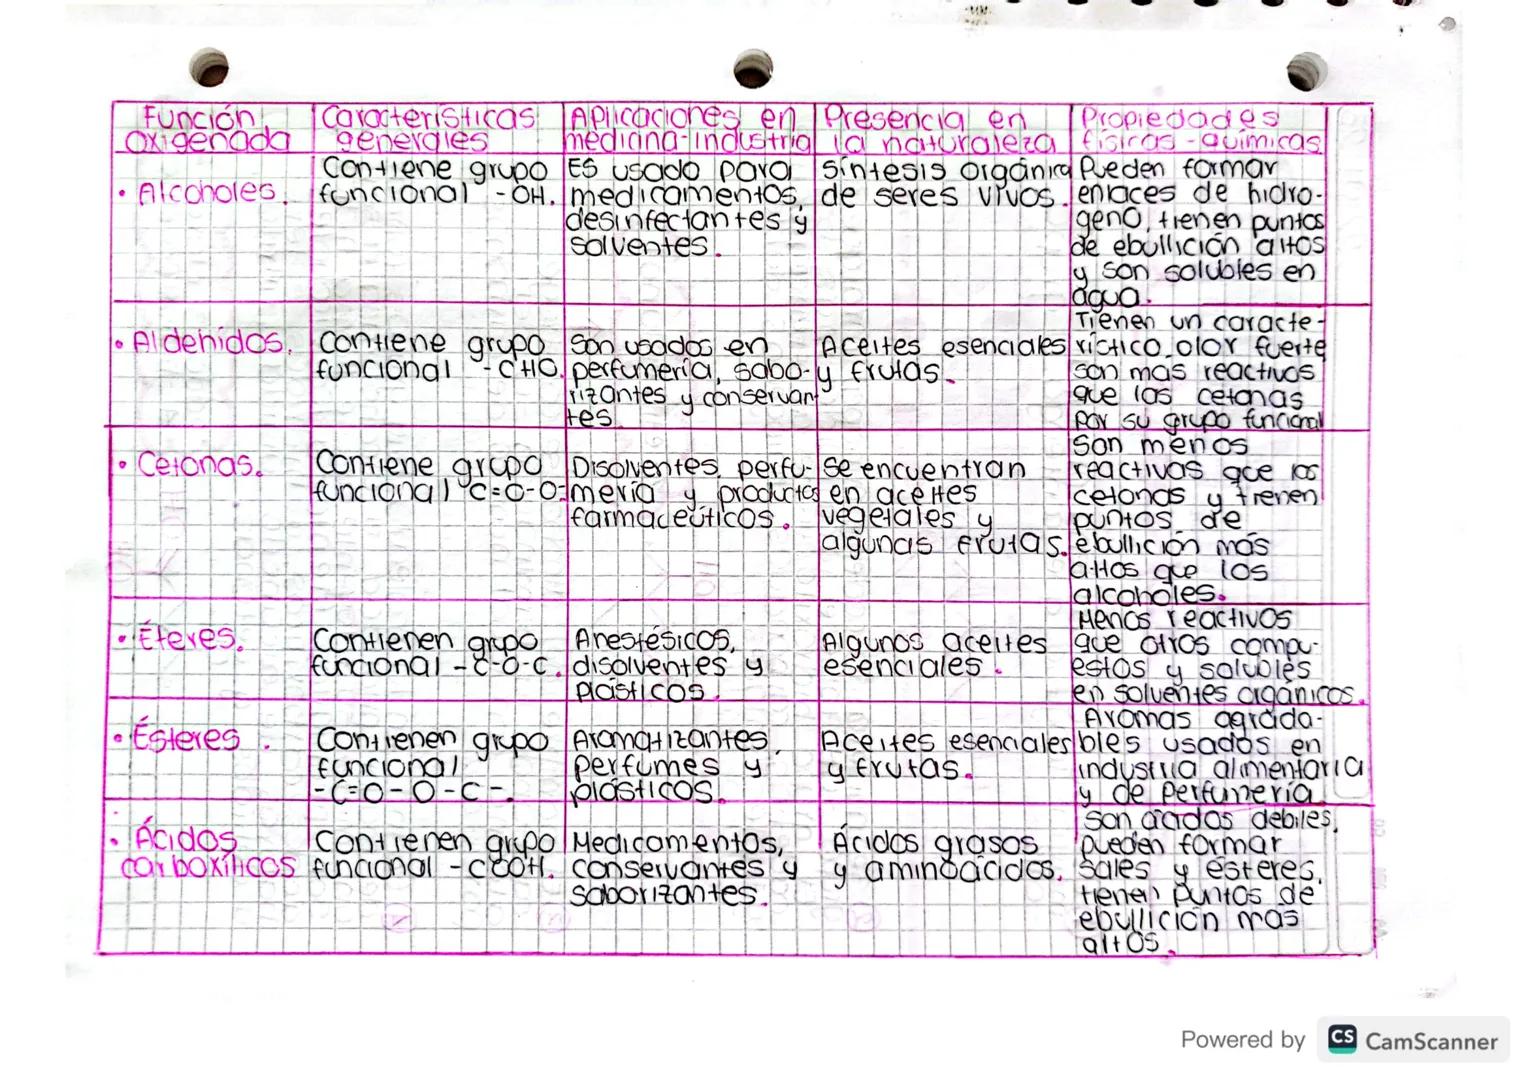 Función oxigenada
Características generales
Aplicaciones en medicina-industria
Presencia en la naturaleza
Propiedades físicas-químicas
• Alcoholes.
Contiene grupo
funcional -OH.
ES usado para
medicamentos,
desinfectantes y
solventes.
Síntesis orgánica
de seres vivos.
Pueden formar
enlaces de hidro-
geno, tienen puntos
de ebullición altos
y son solubles en
agua.
• Aldehídos.
Contiene grupo
funcional -CHO.
Son usados en
perfumería, sabo-
rizantes y conservan
tes
Aceites esenciales
y frutas.
Tienen un caracte-
rístico olor fuerte
son mas reactivos
que las cetonas
por su grupo funcional
• Cetonas.
Contiene grupo
funcional C=O-O=
Disolventes, perfu-
mería y productos
farmacéuticos.
Se encuentran
en aceites
vegetales y
algunas frutas.
Son menos
reactivos que los
cetonas y tienen
puntos de
ebullición más
altos que los
alcoholes.
• Éteres.
Contienen grupo
funcional -C-O-C.
Anestésicos,
disolventes y
plásticos.
Algunos aceites
esenciales.
Menos reactivos
que otros compu-
estos y solubles
en solventes orgánicos.
• Ésteres.
Contienen grupo
funcional
-C=O-O-C-.
Aromatizantes,
perfumes y
plásticos.
Aceites esenciales
y frutas.
Aromas agrada-
bles usados en
industria alimentaria
y de perfumería.
• Ácidos
carboxílicos
Contienen grupo
funcional -COOH.
Medicamentos,
conservantes y
saborizantes.
Ácidos grasos
y aminoácidos.
Son ácidos debiles,
pueden formar
sales y ésteres,
tienen puntos de
ebullición mas
altos.
Powered by CS CamScanner